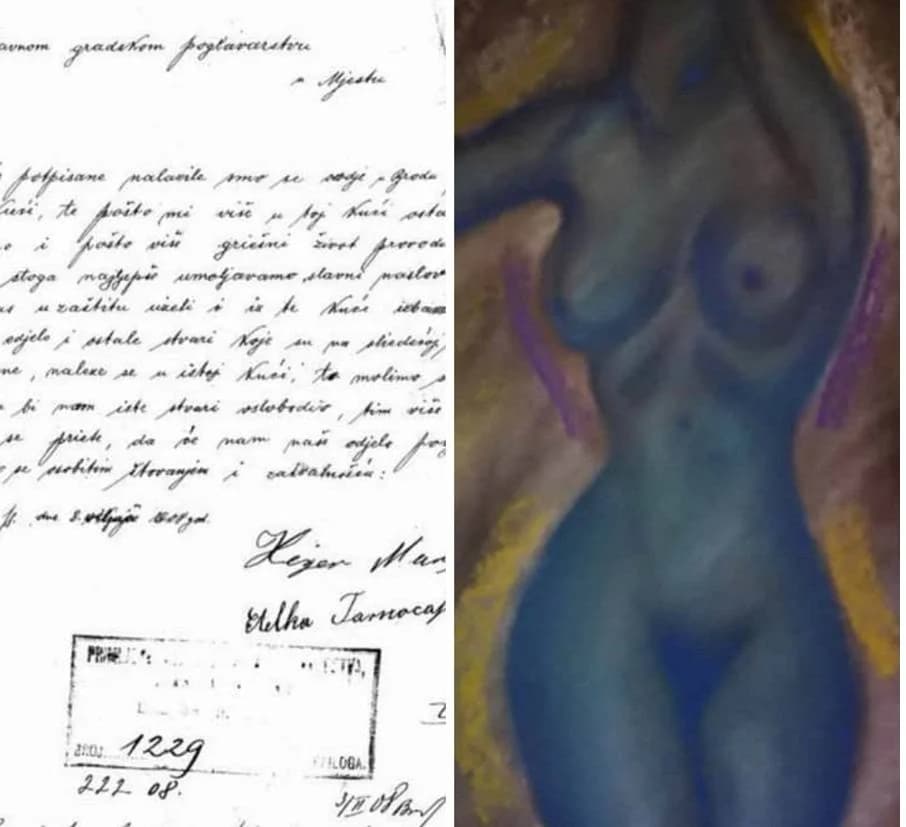 gradskom poglavarstvu
u Mjestu
potpisane nalazile smo se ovdje u Brodu
kući, te pošto mi više u toj kući osta
i pošto više griešni život provodi
stoga najljepše umoljavamo slavni naslov
u zaštitu uzeli i iz te kuće izbavi
odjelo i ostale stvari koje su na sliedećoj
ne, nalaze se u istoj kući, to molimo
bi nam iste stvari oslobodio, tim više
se priete, da će nam naše odjelo
se osobitim štovanjem i zahvalnošću:
dne 3. 1908 god.
Etelka Tarnocay
BROJ 1229 PRILOGA.
222 08.
3/II 08